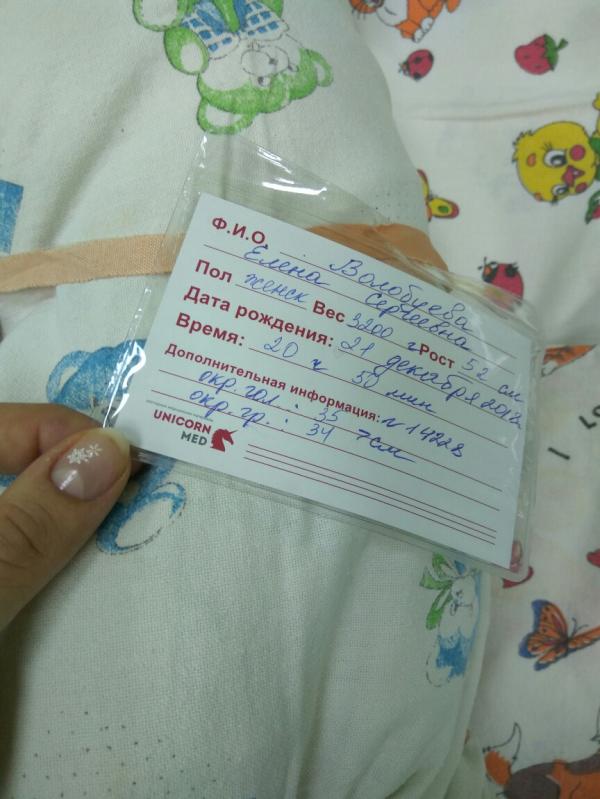 Ф.И.О. Волобуева
Елена Сергеевна
Пол женск Вес 3200 г Рост 52 см
Дата рождения: 21 декабря 2018
Время: 20 ч 50 мин
Дополнительная информация: N 14228
окр. гол.: 35
окр. гр.: 34 см
UNICORN
MED
I LO